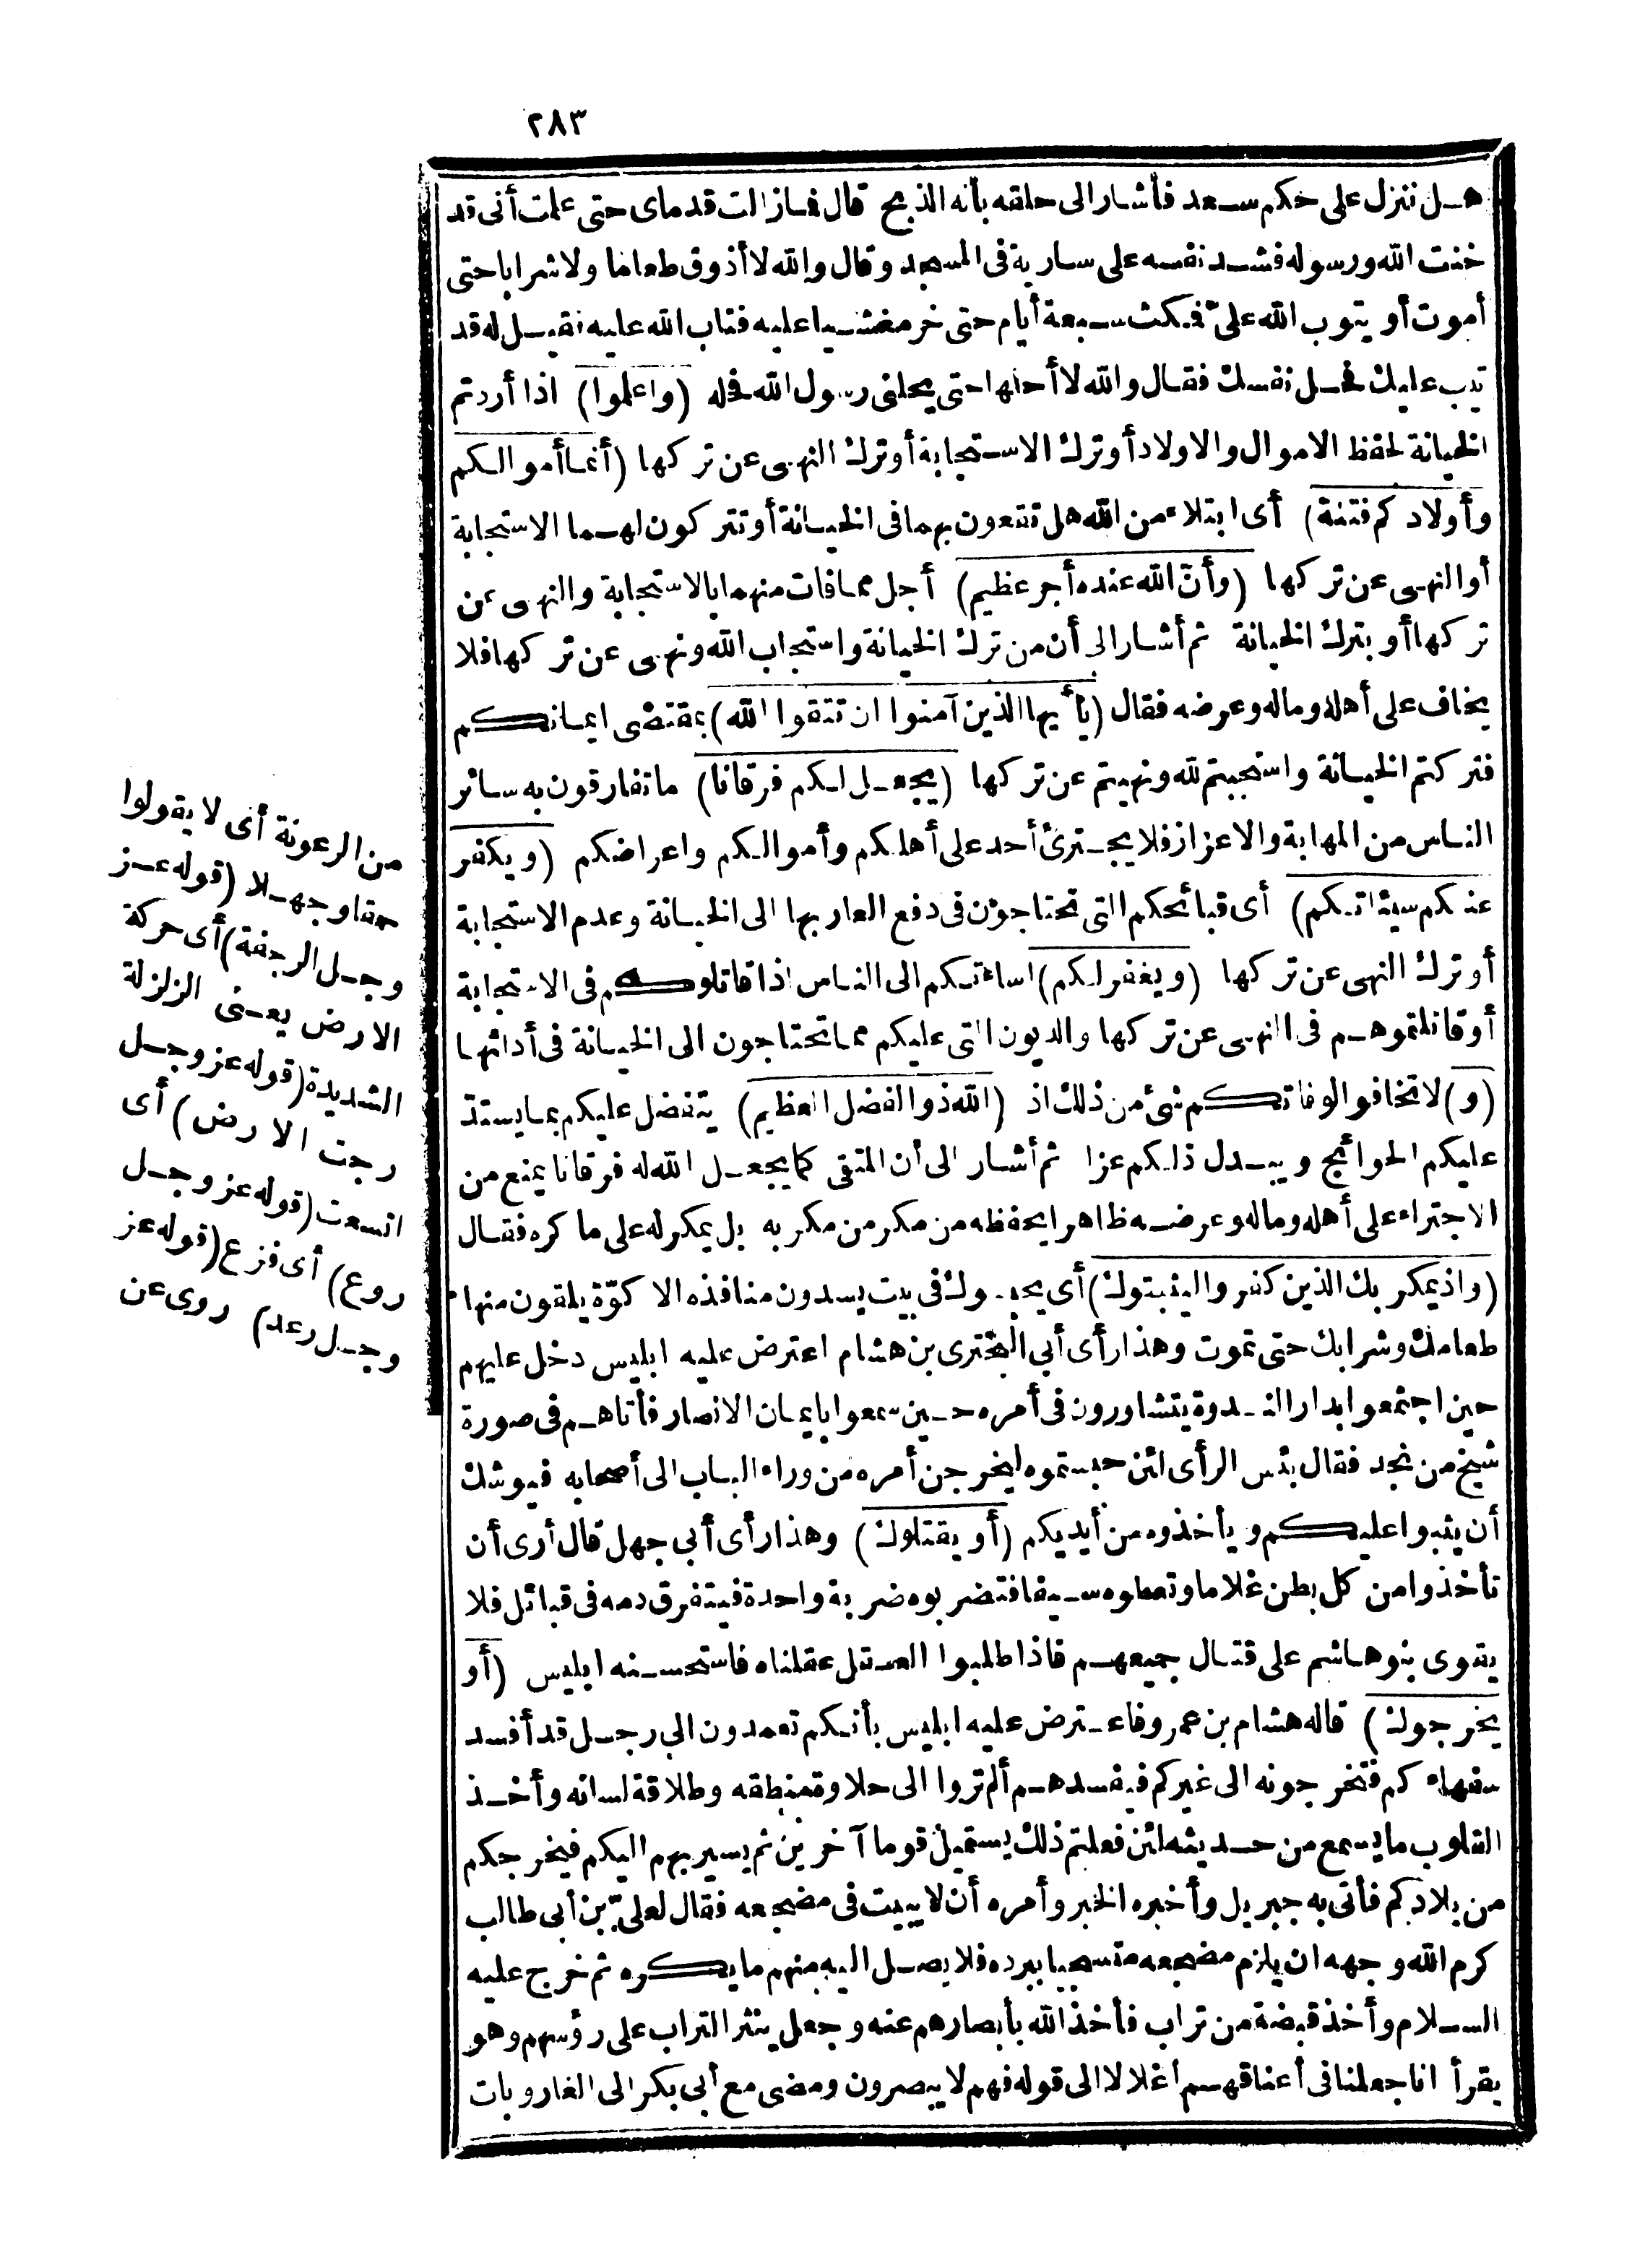 ٢٨٣
هل ننزل على حكم سعد فأشار الى حلقه بأنه الذبح قال فما زالت قدماى حتى علمت أنى قد
خنت الله ورسوله فشد نفسه على سارية فى المسجد وقال والله لا أذوق طعاما ولا شرابا حتى
أموت أو يتوب الله علىّ فمكث سبعة أيام حتى خر مغشيا عليه فتاب الله عليه فقيل له قد
تيب عليك فحل نفسك فقال والله لا أحلها حتى يحلنى رسول الله فحله (واعلموا) اذا أردتم
الخيانة لحفظ الاموال والاولاد أو ترك الاستجابة أو ترك النهى عن تركها (أنما أموالكم
وأولادكم فتنة) أى ابتلاء من الله هل تقعون بهما فى الخيانة أو تتركون لهما الاستجابة
أو النهى عن تركها (وأنّ الله عنده أجر عظيم) أجل مما فات منهما بالاستجابة والنهى عن
تركها أو بترك الخيانة ثم أشار الى أن من ترك الخيانة واستجاب الله ونهى عن تركها فلا
يخاف على أهله وماله وعرضه فقال (يأيها الذين آمنوا ان تتقوا الله) بمقتضى ايمانكم
فتركتم الخيانة واستجبتم لله ونهيتم عن تركها (يجعل لكم فرقانا) ما تفارقون به سائر
الناس من المهابة والاعزاز فلا يجترئ أحد على أهلكم وأموالكم واعراضكم (ويكفر
عنكم سيئاتكم) أى قبائحكم التى تحتاجون فى دفع العار بها الى الخيانة وعدم الاستجابة
أو ترك النهى عن تركها (ويغفر لكم) اساءتكم الى الناس اذا قاتلوكم فى الاستجابة
أو قاتلتموهم فى النهى عن تركها والديون التى عليكم مما تحتاجون الى الخيانة فى أدائها
(و) لا تخافوا لوفاتكم شئ من ذلك اذ (الله ذو الفضل العظيم) يتفضل عليكم بما يستد
عليكم الحوائج ويبدل ذلكم عزا ثم أشار الى أن المتقى كما يجعل الله له فرقانا يمنع من
الاجتراء على أهله وماله وعرضه ظاهرا يحفظه من مكر من مكر به بل يمكر له على ما كره فقال
(واذ يمكر بك الذين كفروا ليثبتوك) أى يحبسوك فى بيت يسدون منافذه الا كوّة يلقون منها
طعامك وشرابك حتى تموت وهذا رأى أبى البخترى بن هشام اعترض عليه ابليس دخل عليهم
حين اجتمعوا بدار الندوة يتشاورون فى أمره حين سمعوا بايمان الانصار فأتاهم فى صورة
شيخ من نجد فقال بئس الرأى لئن حبستموه ليخرجن أمره من وراء الباب الى أصحابه فيوشك
أن يثبوا عليكم ويأخذوه من أيديكم (أو يقتلوك) وهذا رأى أبى جهل قال أرى أن
تأخذوا من كل بطن غلاما وتعطوه سيفا فتضربوه ضربة واحدة فيتفرق دمه فى قبائل فلا
يقوى بنو هاشم على قتال جميعهم فاذا طلبوا العقل عقلناه فاستحسنه ابليس (أو
يخرجوك) قاله هشام بن عمرو فاعترض عليه ابليس بأنكم تعمدون الى رجل قد أفسد
سفهاءكم فتخرجونه الى غيركم فيفسدهم ألم تروا الى حلاوة منطقه وطلاقة لسانه وأخذ
القلوب ما يسمع من حديثه لئن فعلتم ذلك يستميل قوما آخرين ثم يسير بهم اليكم فيخرجكم
من بلادكم فأتى به جبريل وأخبره الخبر وأمره أن لا يبيت فى مضجعه فقال لعلىّ بن أبى طالب
كرم الله وجهه ان يلزم مضجعه متسجيا ببرده فلا يصل اليه منهم ما يكره ثم خرج عليه
السلام وأخذ قبضة من تراب فأخذ الله بأبصارهم عنه وجعل ينثر التراب على رؤسهم وهو
يقرأ انا جعلنا فى أعناقهم أغلالا الى قوله فهم لا يبصرون ومضى مع أبى بكر الى الغار وبات
من الرعونة أى لا يقولوا
حمقا وجهلا (قوله عز
وجل الرجفة) أى حركة
الارض يعنى الزلزلة
الشديدة (قوله عز وجل
رحبت الارض) أى
اتسعت (قوله عز وجل
روع) أى فزع (قوله عز
وجل رعد) روى عن